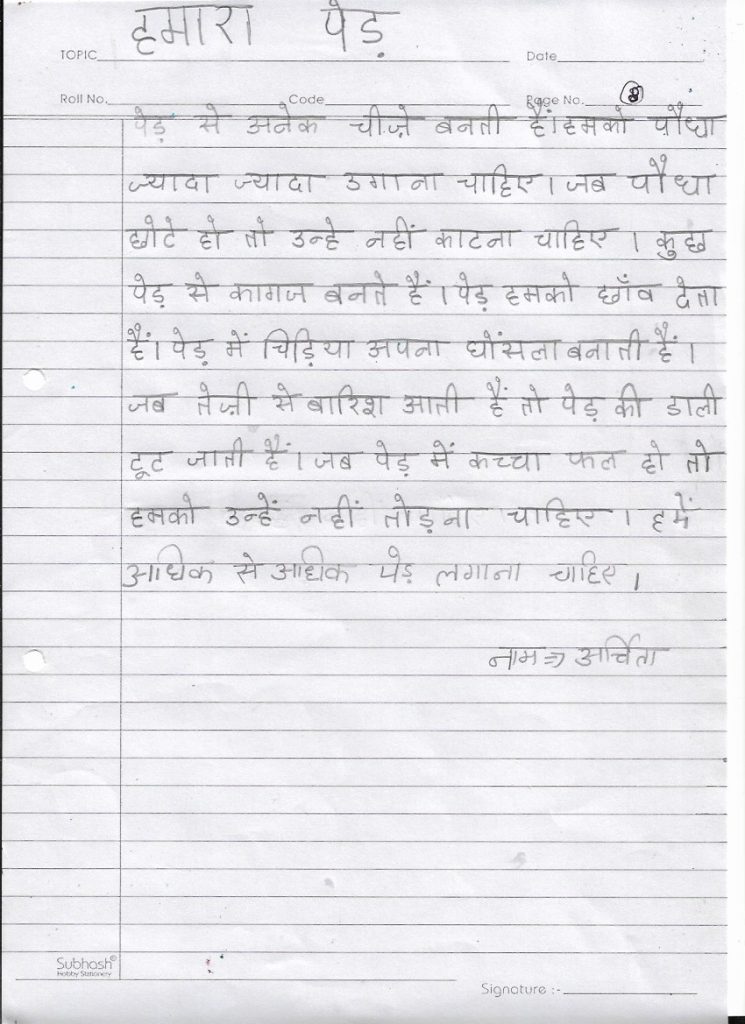 हमारा पेड़
TOPIC
Date
Roll No.
Code
Page No. 8
पेड़ से अनेक चीज़े बनती हैं। हमको पौधा
ज्यादा ज्यादा उगाना चाहिए। जब पौधा
छोटे हो तो उन्हे नहीं काटना चाहिए। कुछ
पेड़ से कागज बनते हैं। पेड़ हमको छाँव देता
हैं। पेड़ में चिड़िया अपना घोंसला बनाती हैं।
जब तेज़ी से बारिश आती हैं तो पेड़ की डाली
टूट जाती हैं। जब पेड़ में कच्चा फल हो तो
हमको उन्हें नहीं तोड़ना चाहिए। हमें
अधिक से अधिक पेड़ लगाना चाहिए।
नाम ⇒ अर्चिता
Subhash
Hobby Stationery
Signature :-